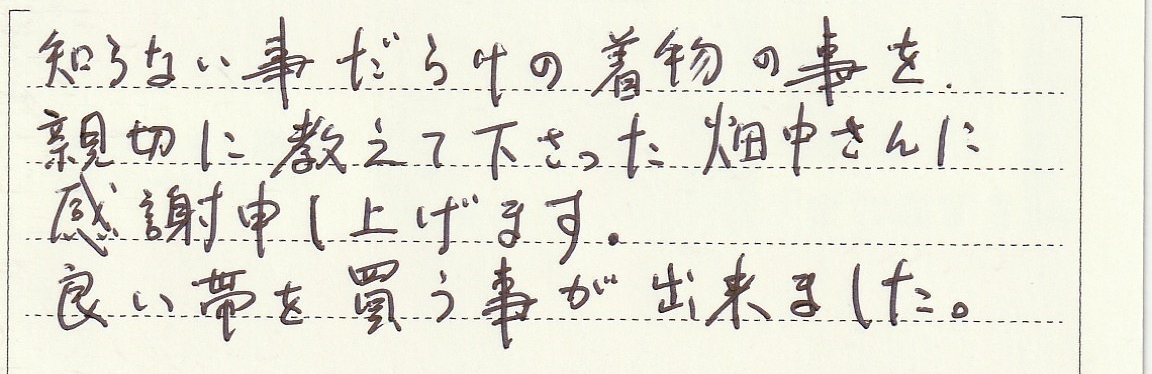 知らない事だらけの着物の事を、
親切に教えて下さった畑中さんに
感謝申し上げます。
良い帯を買う事が出来ました。